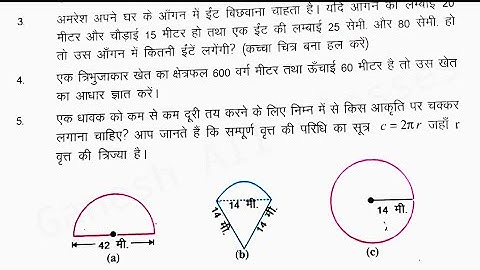 3. अमरेश अपने घर के आँगन में ईंट बिछवाना चाहता है। यदि आँगन की लम्बाई 20
मीटर और चौड़ाई 15 मीटर हो तथा एक ईंट की लम्बाई 25 सेमी. और 80 सेमी. हो
तो उस आँगन में कितनी ईंटें लगेंगी? (कच्चा चित्र बना हल करें)
4. एक त्रिभुजाकार खेत का क्षेत्रफल 600 वर्ग मीटर तथा ऊँचाई 60 मीटर है तो उस खेत
का आधार ज्ञात करें।
5. एक धावक को कम से कम दूरी तय करने के लिए निम्न में से किस आकृति पर चक्कर
लगाना चाहिए? आप जानते हैं कि सम्पूर्ण वृत्त की परिधि का सूत्र c = 2πr जहाँ r
वृत्त की त्रिज्या है।
42 मी.
(a)
14 मी.
14 मी.
14 मी.
(b)
14 मी.
(c)